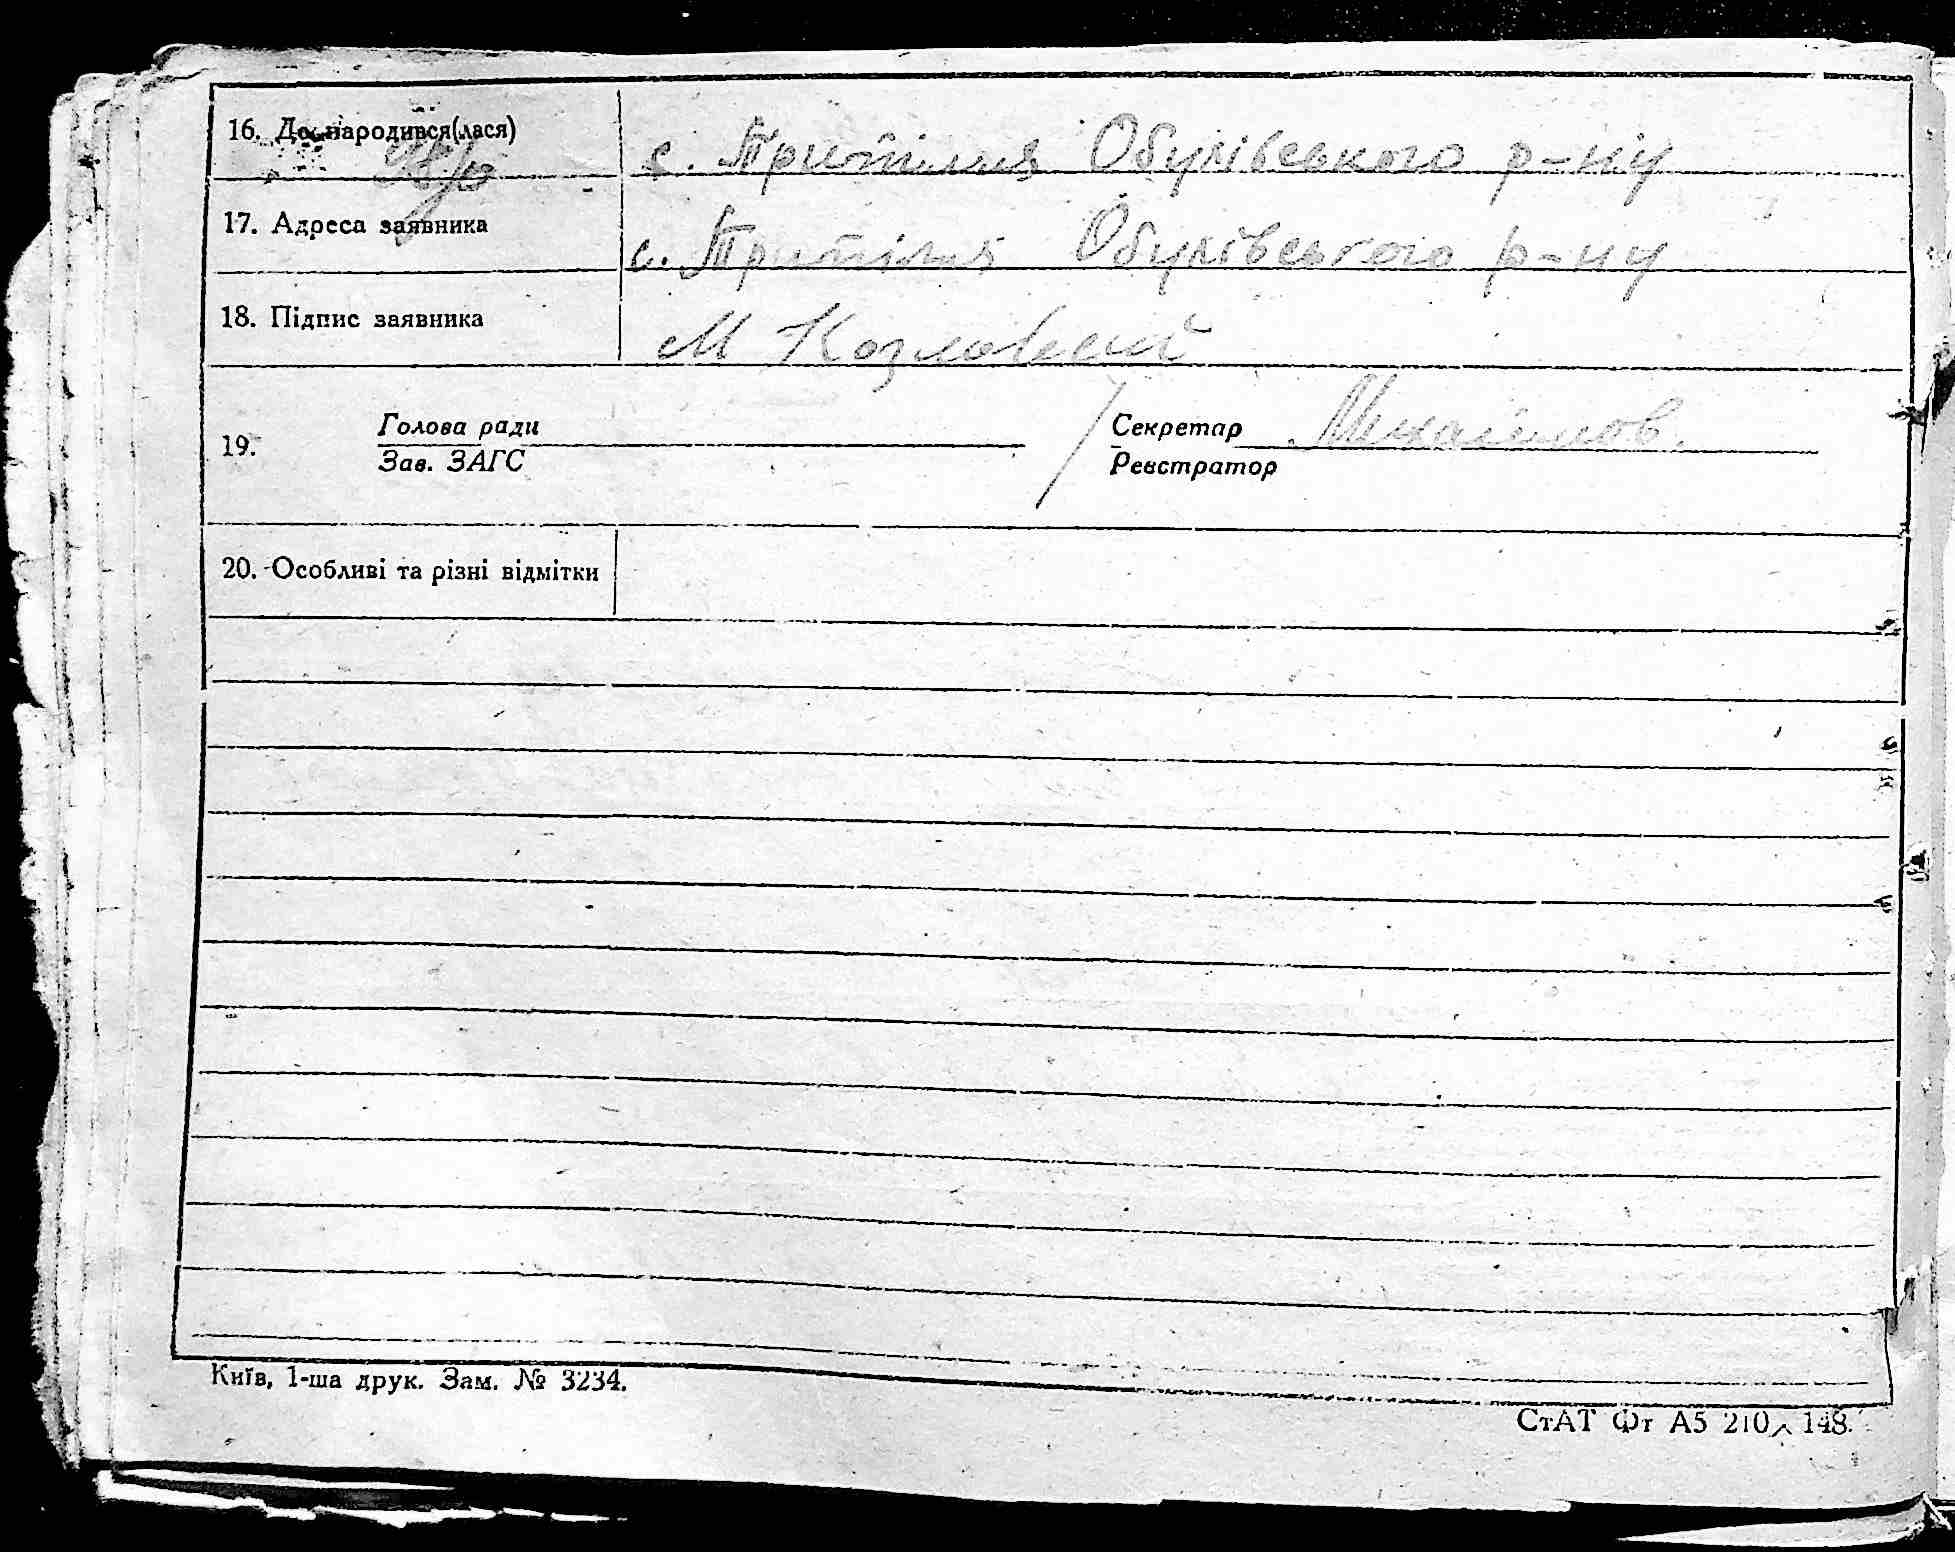 16. Де народився(лася)
с. Притілля Обухівського р-ну
17. Адреса заявника
с. Притілля Обухівського р-ну
18. Підпис заявника
М Козловский
19. Голова ради
Зав. ЗАГС
Секретар
Реєстратор
20. Особливі та різні відмітки
Київ, 1-ша друк. Зам. № 3234.
СтАТ Фт А5 210 × 148.